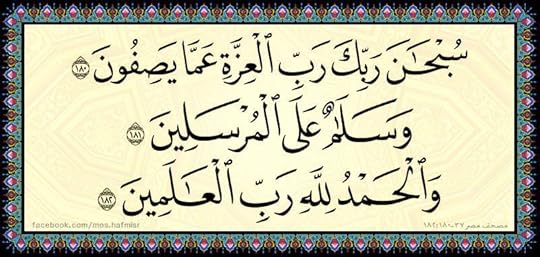 سُبْحَٰنَ رَبِّكَ رَبِّ ٱلْعِزَّةِ عَمَّا يَصِفُونَ ١٨٠
وَسَلَٰمٌ عَلَى ٱلْمُرْسَلِينَ ١٨١
وَٱلْحَمْدُ لِلَّهِ رَبِّ ٱلْعَٰلَمِينَ ١٨٢
مصحف مصر ٣٧-١٨٠:١٨٢
facebook.com/mos.hafmisr